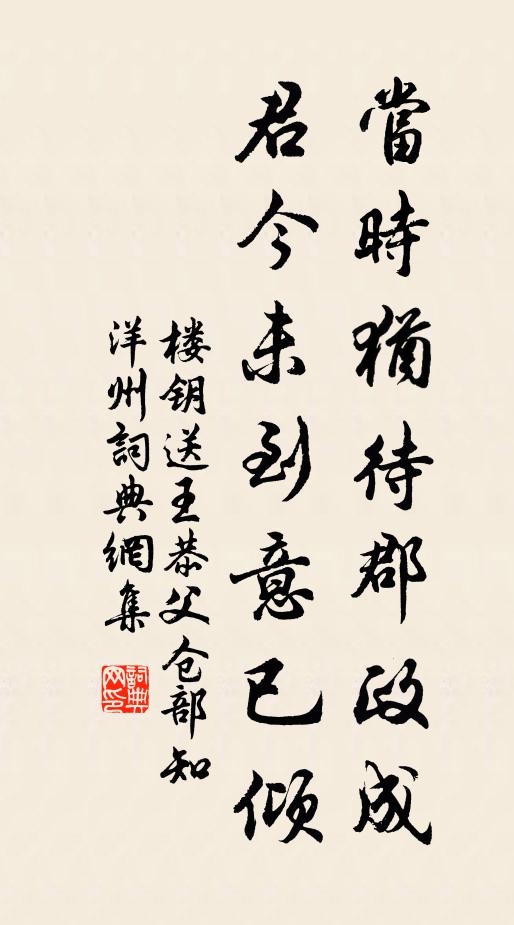 當時猶待郡政成
君今未到意已傾
楼钥送王恭父仓部知
洋州詞典網集
詞典网印